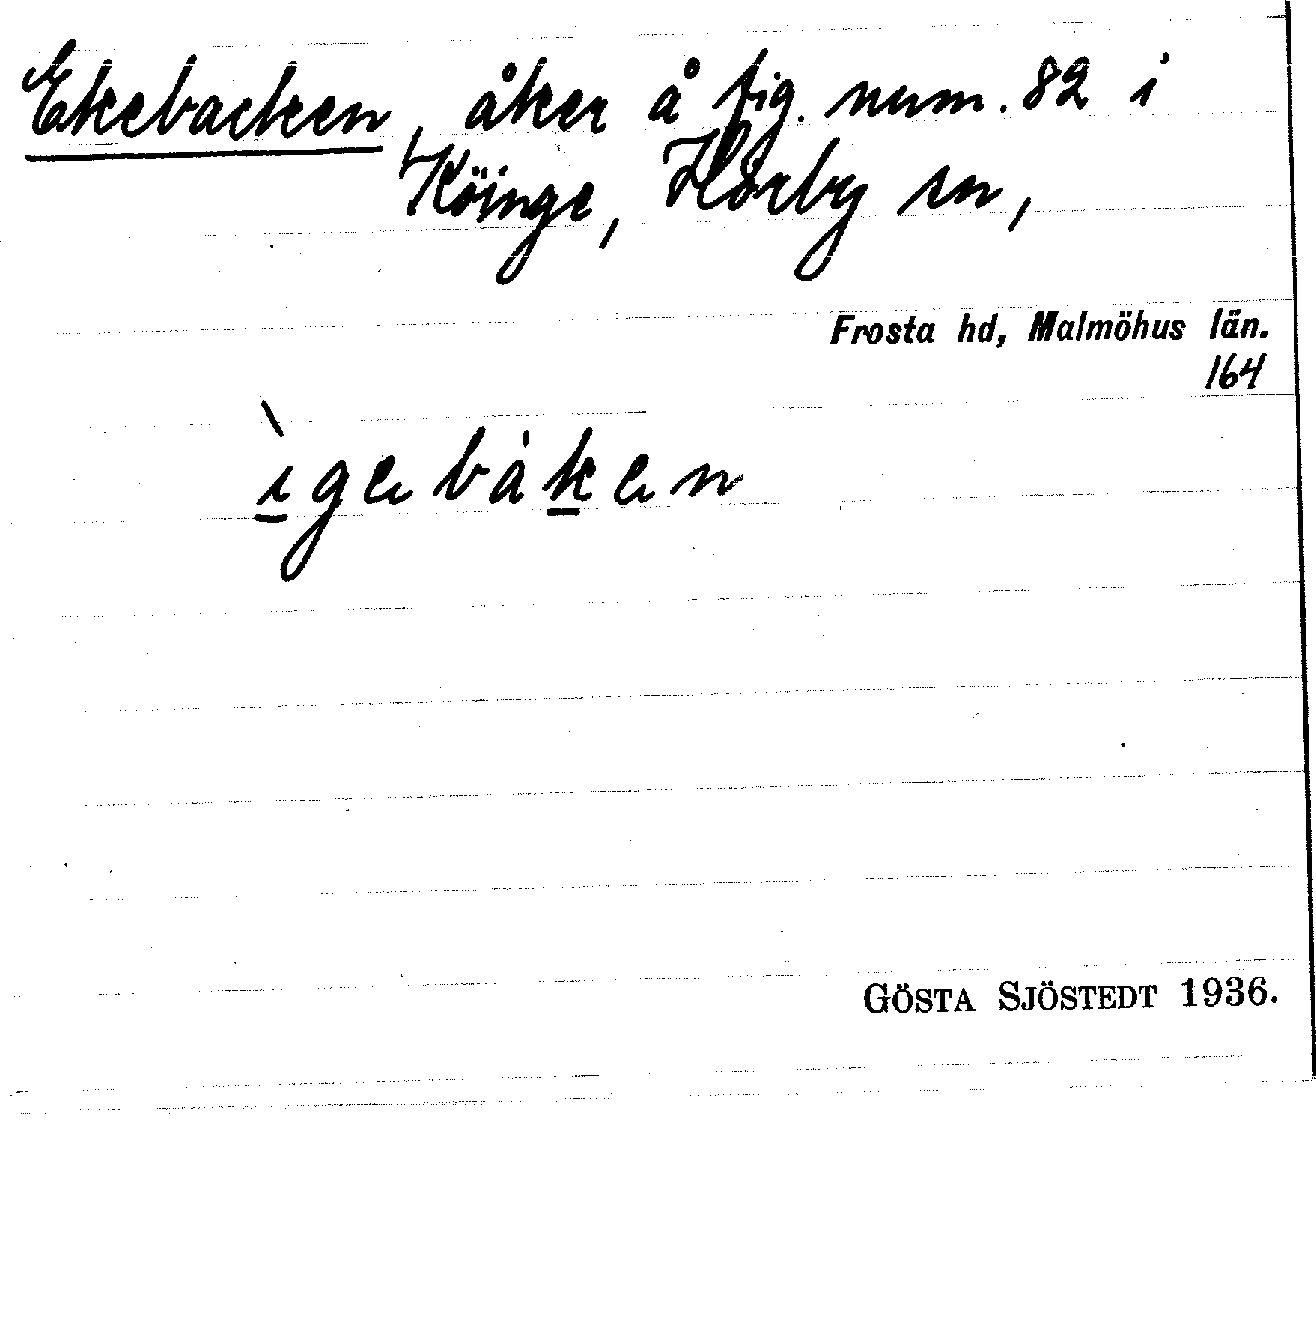 Ekebacken, åker å fig. num. 82 i
Köinge, Hörby sn,
Frosta hd, Malmöhus län.
164
ı̀gebàken
GÖSTA SJÖSTEDT 1936.